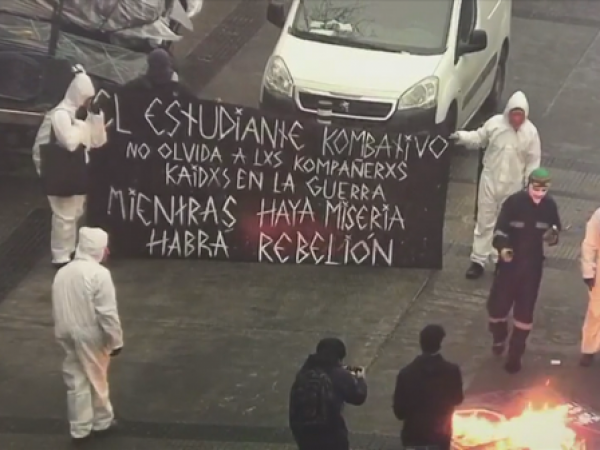 EL ESTUDIANTE KOMBATIVO
NO OLVIDA A LXS KOMPAÑERXS
KAIDXS EN LA GUERRA
MIENTRAS HAYA MISERIA
HABRÁ REBELIÓN